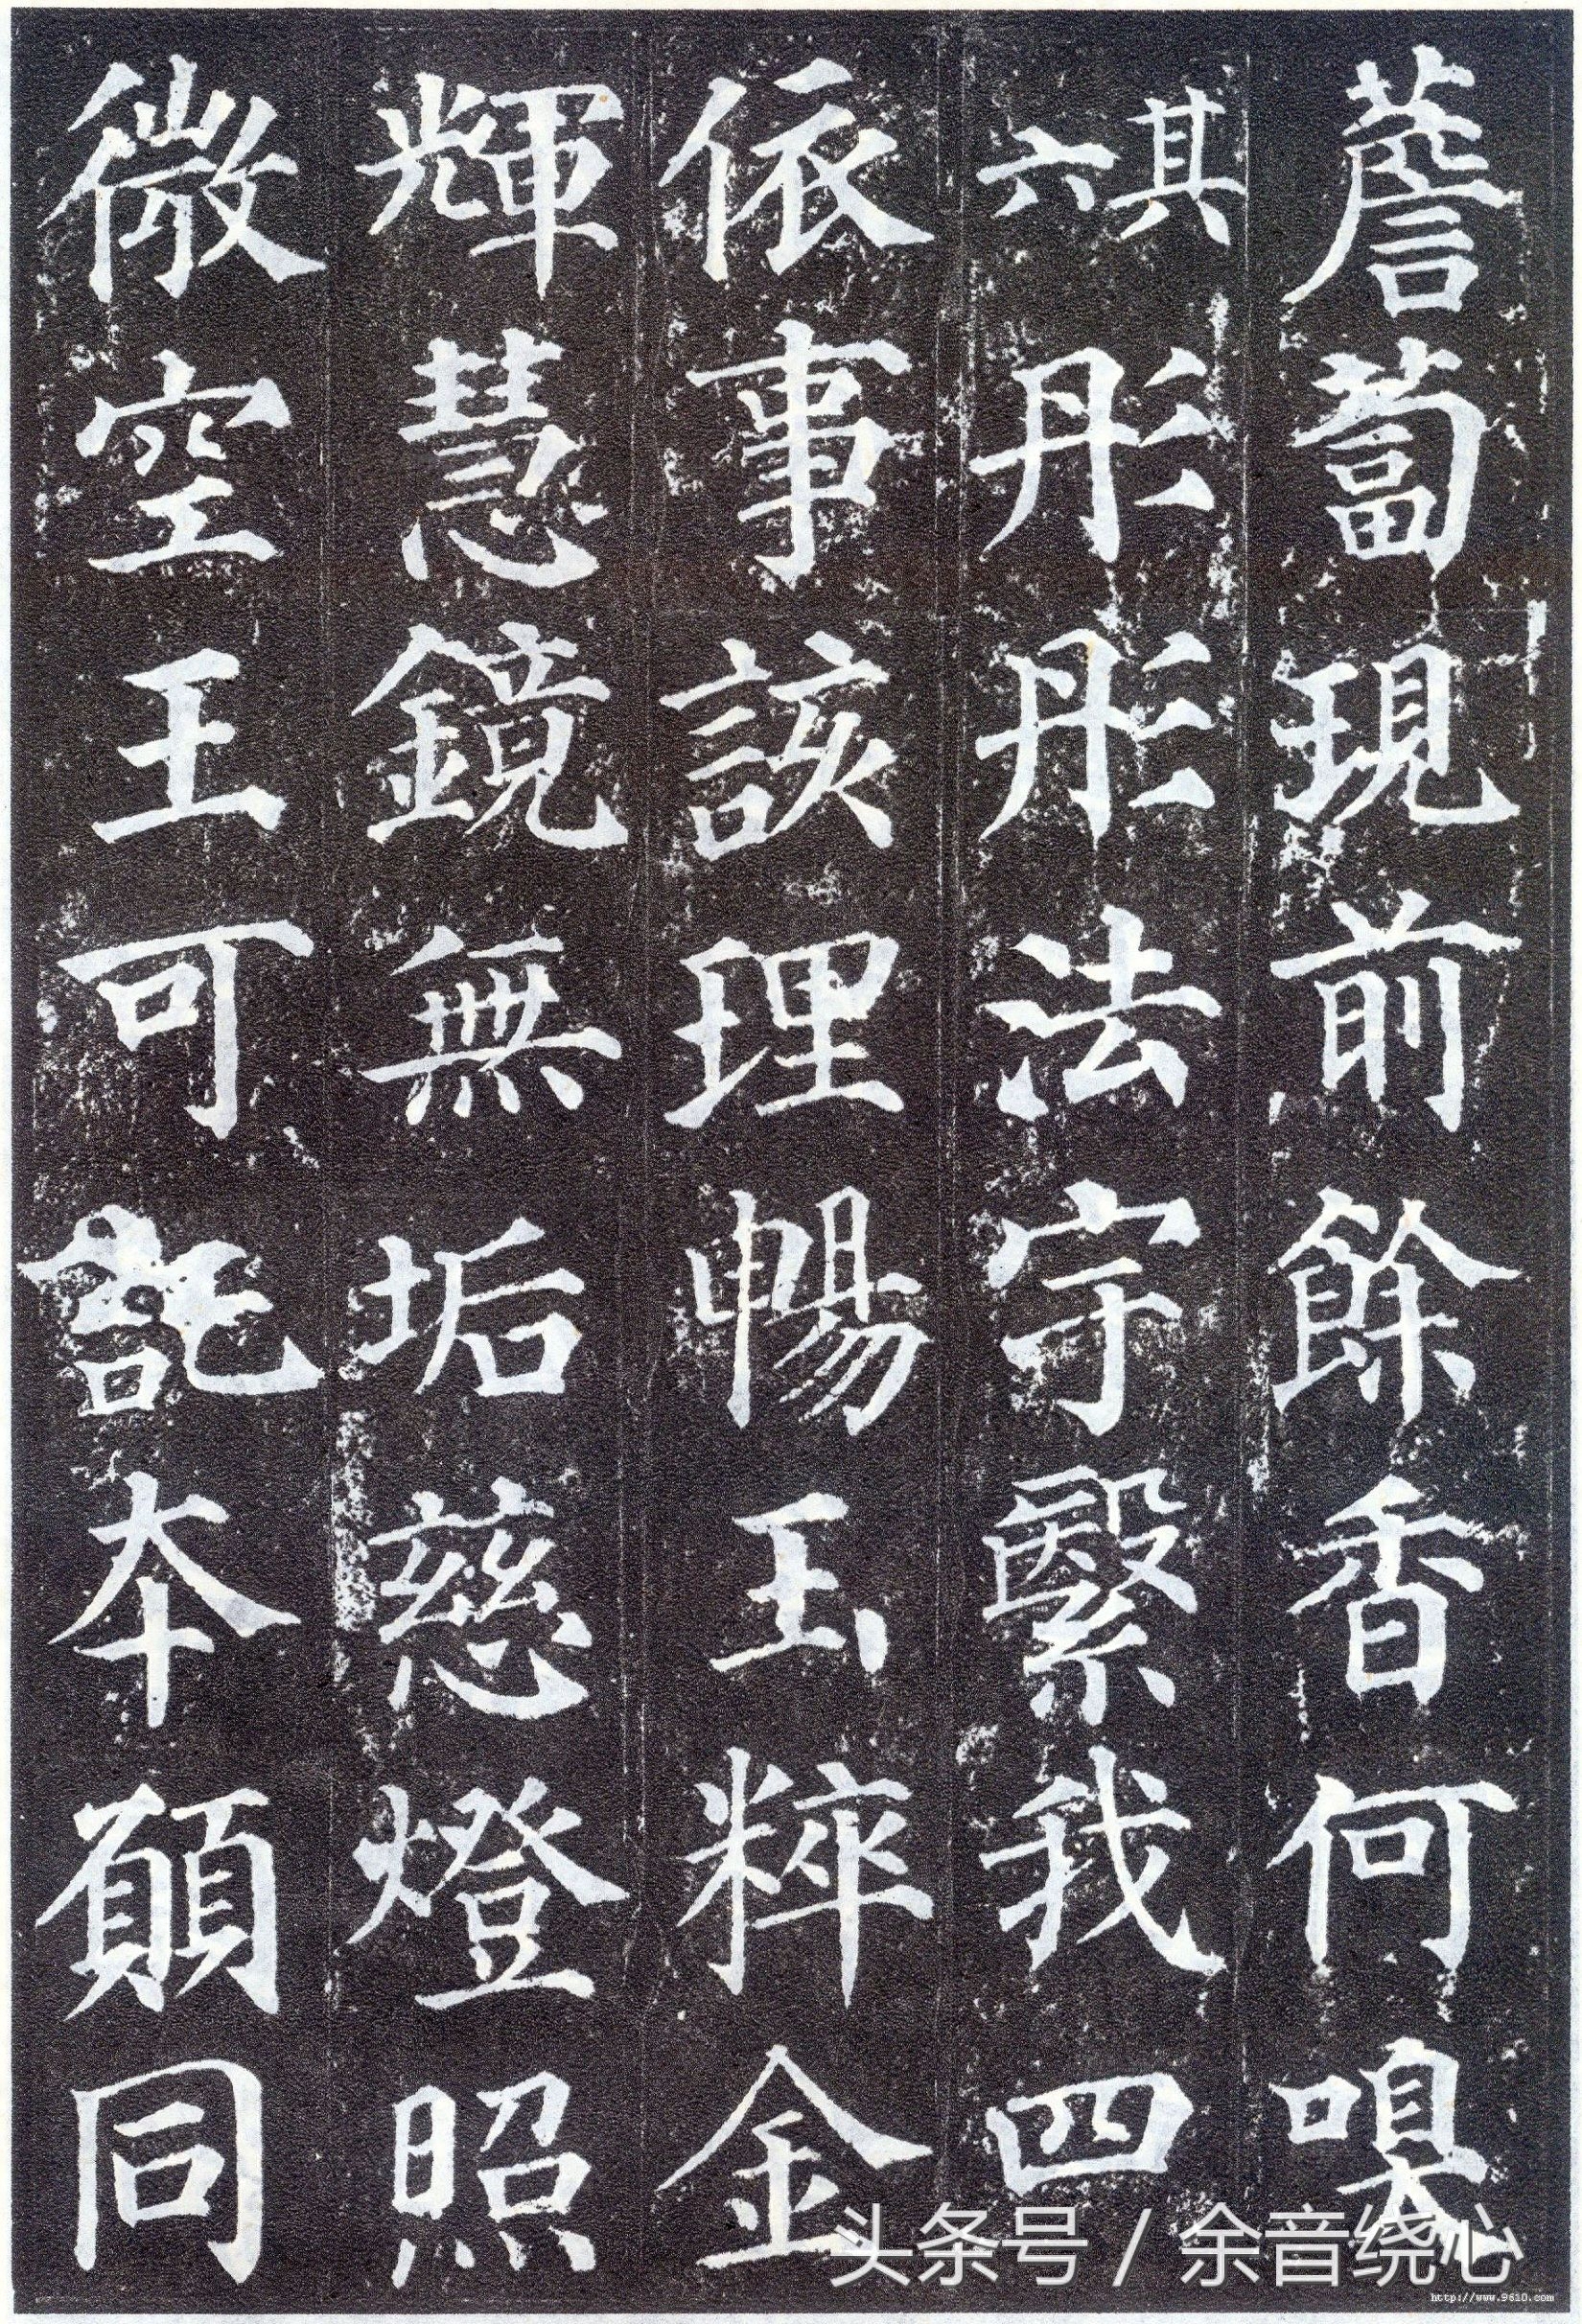 薝蔔現前餘香何嗅
其六
彤彤法宇繄我四
依事該理暢玉粹金
輝慧鏡無垢慈燈照
微空王可託本願同
头条号 / 余音绕心
http://www.9610.com